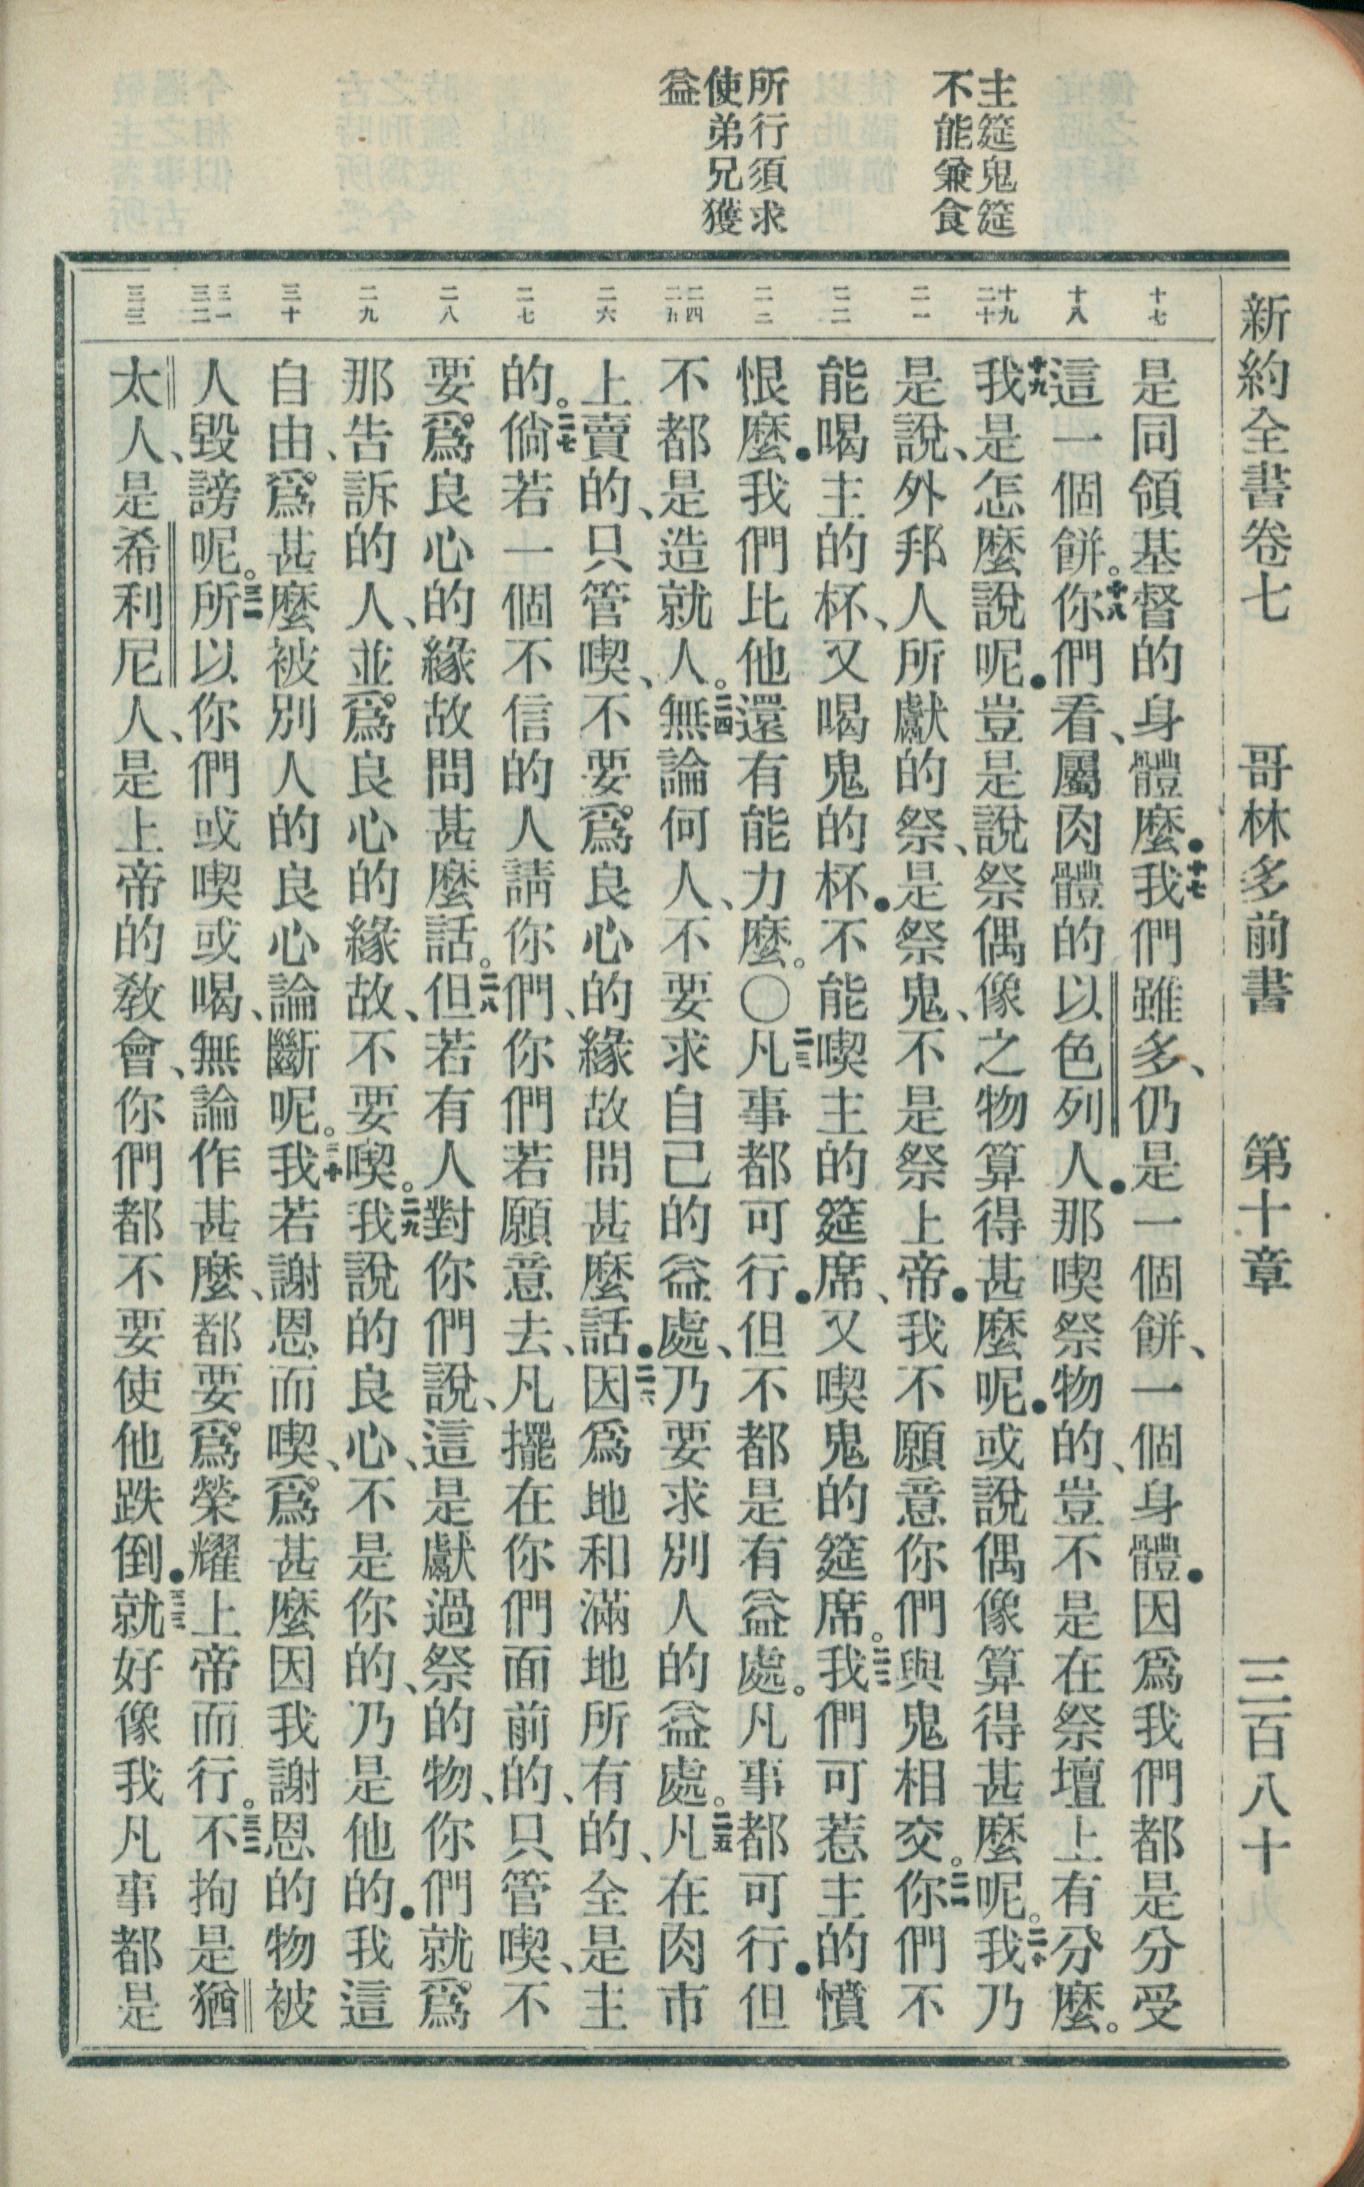 新約全書卷七　哥林多前書　第十章　三百八十
主筵鬼筵
不能兼食
所行須求
使弟兄獲
益
十七
十八
十九
二十
二一
二二
二三
二四
二五
二六
二七
二八
二九
三十
三一
三二
三三
是同領基督的身體麼●十七我們雖多、仍是一個餅、一個身體●因爲我們都是分受
這一個餅。十八你們看、屬肉體的以色列人●那喫祭物的、豈不是在祭壇上有分麼。
十九我是怎麼說呢●豈是說祭偶像之物算得甚麼呢●或說偶像算得甚麼呢。二十我乃
是說、外邦人所獻的祭、是祭鬼、不是祭上帝●我不願意你們與鬼相交。二一你們不
能喝主的杯、又喝鬼的杯●不能喫主的筵席、又喫鬼的筵席。二二我們可惹主的憤
恨麼●我們比他還有能力麼。〇二三凡事都可行●但不都是有益處。凡事都可行●但
不都是造就人。二四無論何人、不要求自己的益處、乃要求別人的益處。二五凡在肉市
上賣的、只管喫、不要爲良心的緣故問甚麼話●二六因爲地和滿地所有的、全是主
的。二七倘若一個不信的人請你們、你們若願意去、凡擺在你們面前的、只管喫、不
要爲良心的緣故問甚麼話。二八但若有人對你們說、這是獻過祭的物、你們就爲
那告訴的人、並爲良心的緣故、不要喫。二九我說的良心、不是你的、乃是他的●我這
自由、爲甚麼被別人的良心、論斷呢。三十我若謝恩而喫、爲甚麼因我謝恩的物被
人毀謗呢。三一所以你們或喫或喝、無論作甚麼、都要爲榮耀上帝而行。三二不拘是猶
太人、是希利尼人、是上帝的教會、你們都不要使他跌倒●三三就好像我凡事都是